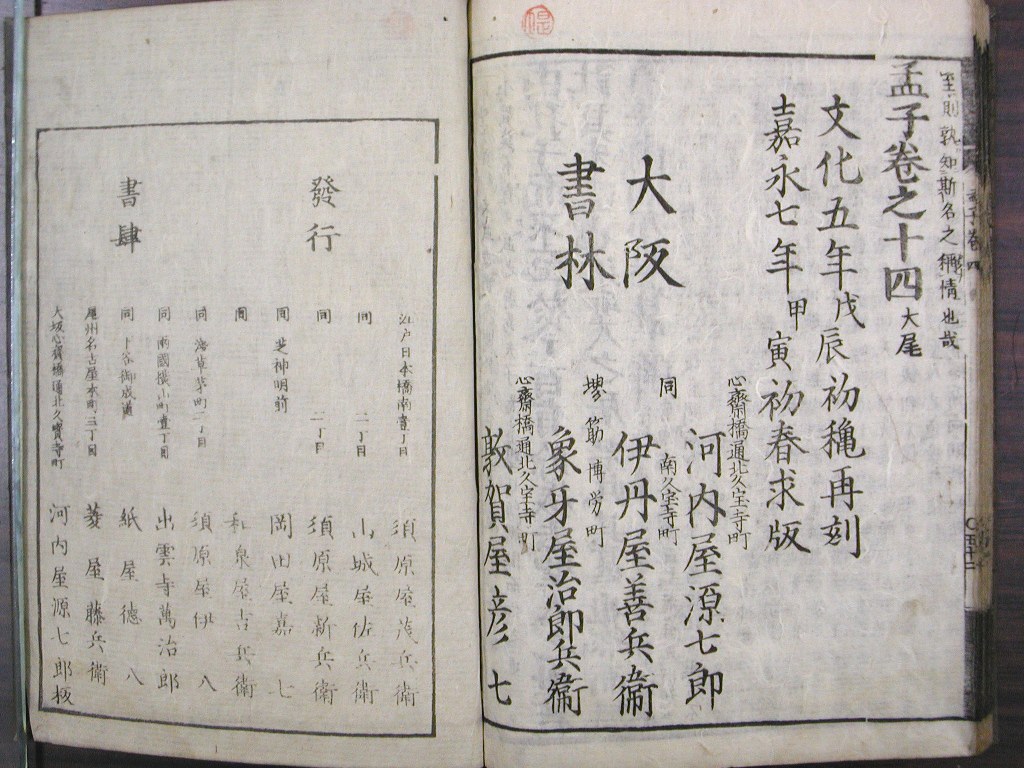 至則孰知斯名之稱情也哉
孟子卷之十四大尾
文化五年戊辰初穐再刻
嘉永七年甲寅初春求版
大阪
書林
心齋橋通北久宝寺町
河内屋源七郎
同 南久宝寺町
伊丹屋善兵衞
堺筋博労町
象牙屋治郎兵衞
心齋橋通北久宝寺町
敦賀屋彦七
發行
書肆
江戸日本橋南壹丁目 須原屋茂兵衞
同 二丁目 山城屋佐兵衞
同 二丁目 須原屋新兵衞
同 芝神明前 岡田屋嘉七
同 和泉屋吉兵衞
同 浅草茅町二丁目 須原屋伊八
同 兩國横山町壹丁目 出雲寺萬治郎
同 下谷御成道 紙屋德八
尾州名古屋本町 丁目 菱屋藤兵衞
大坂心齋橋通北久寶寺町 河内屋源七郎板